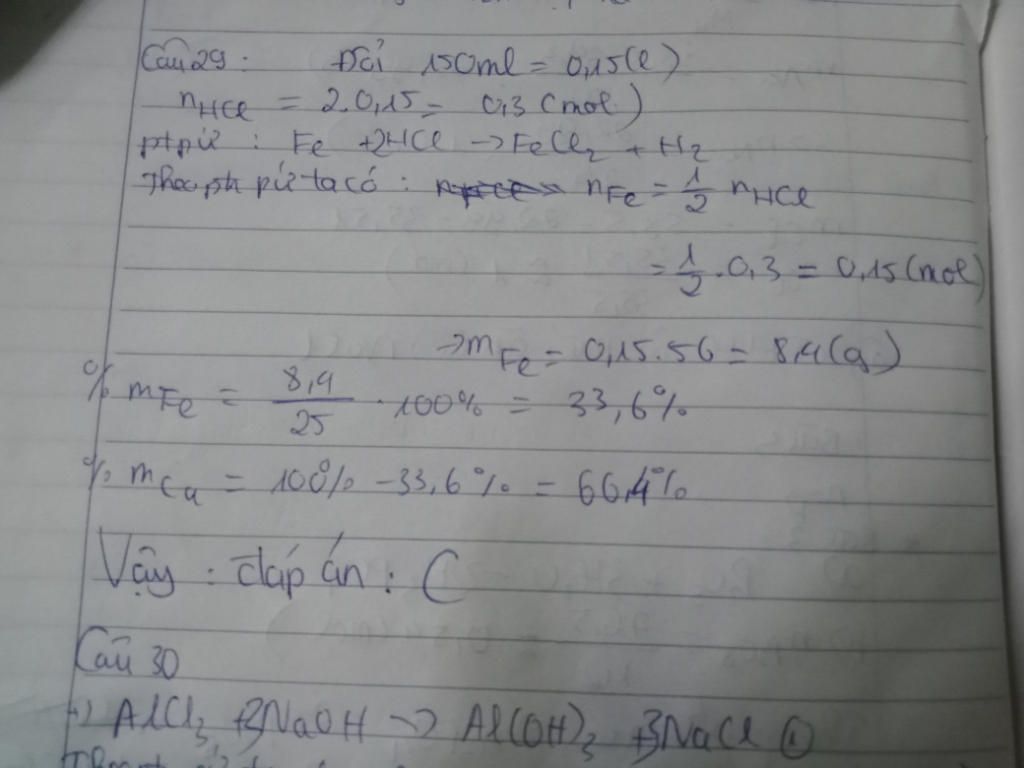 Câu 29: Đổi 150ml = 0,15(l)
nHCl = 2.0,15 = 0,3 (mol)
ptpứ : Fe + 2HCl → FeCl₂ + H₂
Theo pt pứ ta có : nFe = 1/2 nHCl
= 1/2 . 0,3 = 0,15 (mol)
→ mFe = 0,15.56 = 8,4(g)
% mFe = 8,4/25 . 100% = 33,6%
% mCu = 100% - 33,6% = 66,4%
Vậy : đáp án : C
Câu 30
AlCl₃ + 3NaOH → Al(OH)₃ + 3NaCl ①